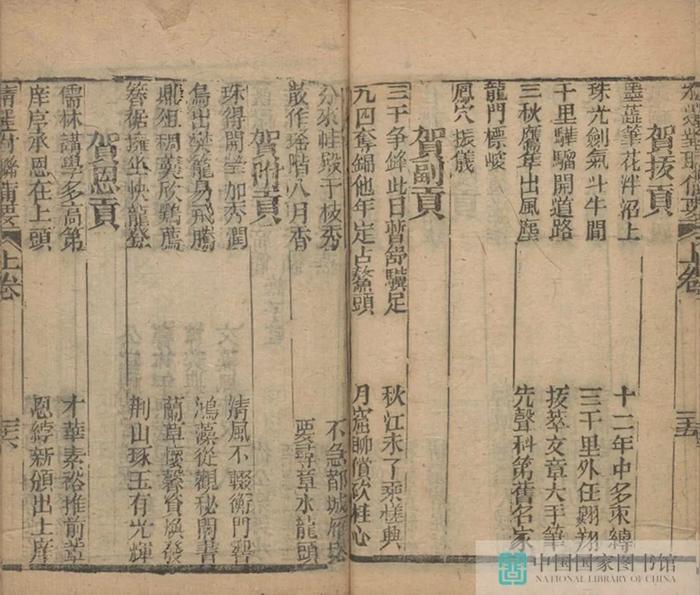 贺拔貢
筆花泮沼上
十二年中多束縛
珠光劍氣斗牛間
三千里外任翱翔
千里驊騮開道路
拔萃文章大手筆
三秋鷹隼出風塵
先聲科第舊名家
龍門標峻
鳳穴振儀
贺副貢
三千爭鋒此日暫舒驥足
秋江未了乘槎
九四奪錦他年定占鰲頭
月窟聊借砍桂心
殿千枝秀
不急都城雁
散作瑤階八月香
章水龍頭
贺附貢
珠得開 加秀潤
清風不輟衡門
鳥出樊籠易飛騰
鴻藻從觀秘閣書
蘭草
簪裾擁坐快龍登
荆山琢玉有光輝
贺恩貢
儒林講學多高第
才華素裕推前輩
庠序承恩在上頭
恩綍新頒出上庠
上卷
中国国家图书馆
NATIONAL LIBRARY OF CHINA